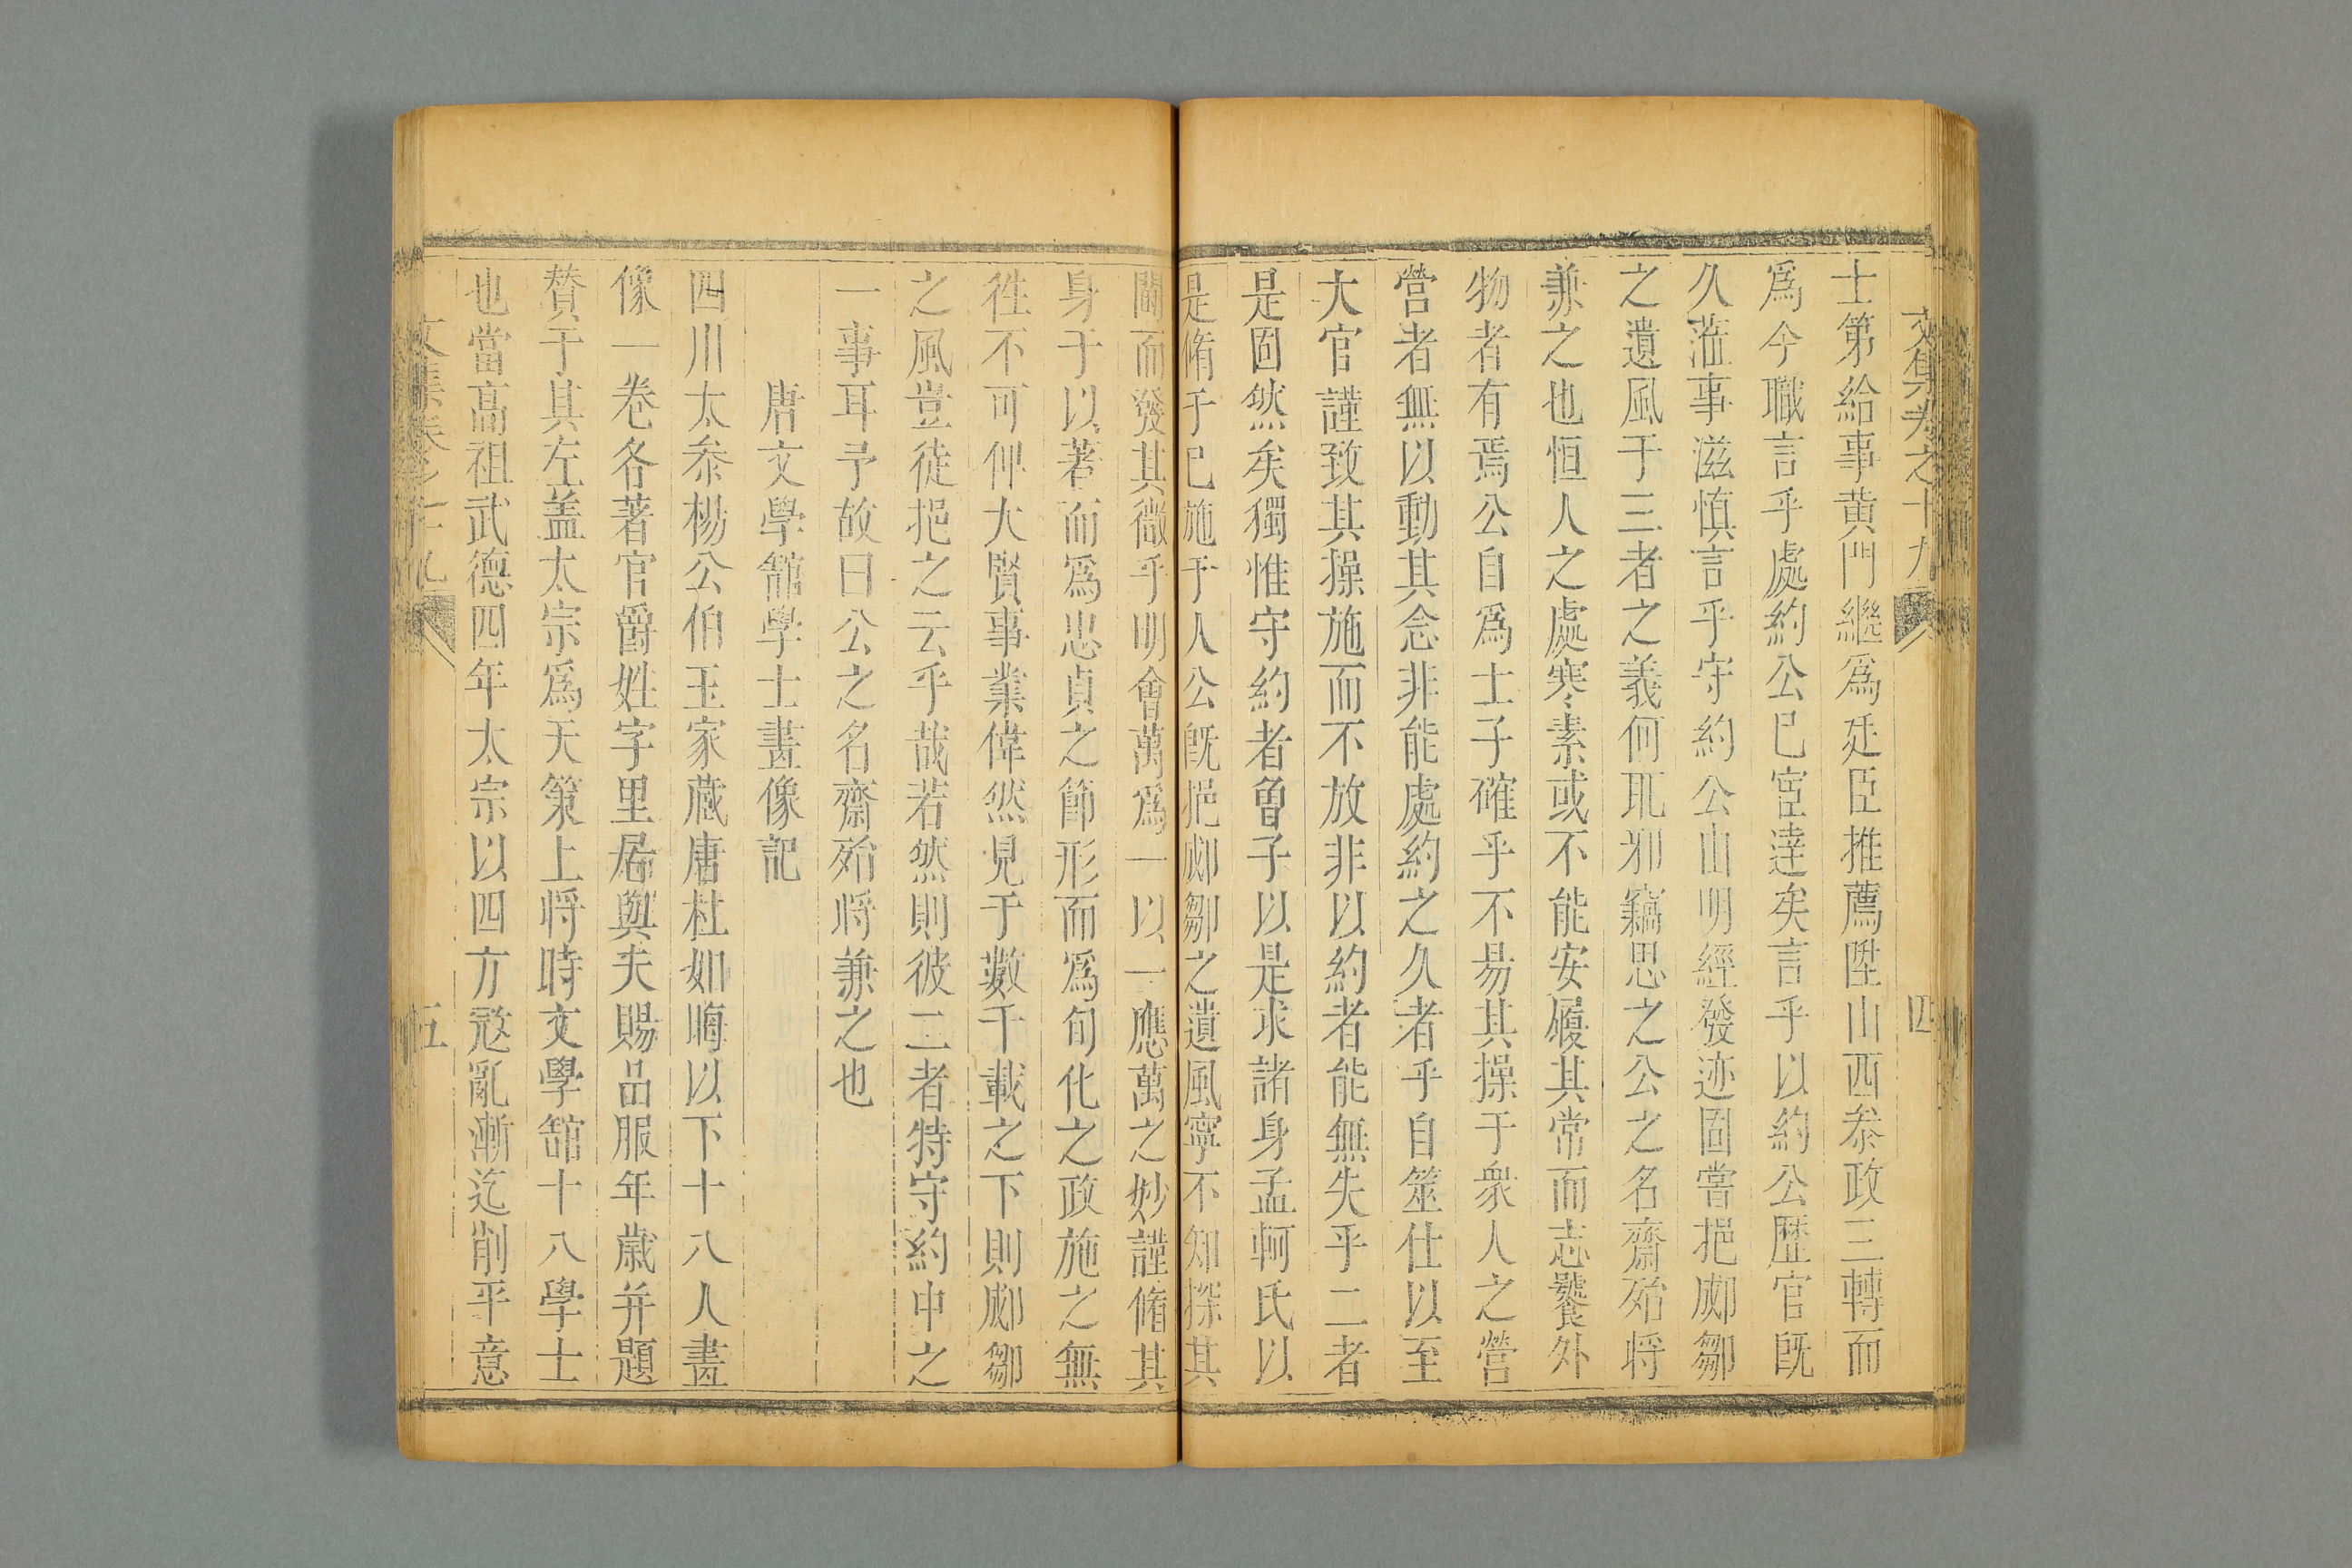 文集卷之十九 四
士第給事黃門繼爲廷臣推薦陞山西叅政三轉而
爲今職言乎處約公巳宦達矣言乎以約公歷官旣
久蒞事滋慎言乎守約公由明經發迹固嘗挹郕鄒
之遺風于三者之義何玑邪竊思之公之名齋殆將
兼之也恒人之處寒素或不能安履其常而志饕外
物者有焉公自爲士子確乎不昜其操于衆人之營
營者無以動其念非能處約之久者乎自筮仕以至
大官謹致其操施而不放非以約者能無失乎二者
是固然矣獨惟守約者曾子以是求諸身孟軻氏以
是脩于已施于人公旣挹郕鄒之遺風寧不知探其
閫而發其微乎明會萬爲一以一應萬之妙謹脩其
身于以著而爲忠貞之節形而爲旬化之政施之無
徃不可俾大賢事業偉然見于數千載之下則郕鄒
之風豈徒挹之云乎哉若然則彼二者特守約中之
一事耳予故曰公之名齋殆將兼之也
唐文學舘學士畫像記
四川太叅楊公伯玉家藏唐杜如晦以下十八人畫
像一卷各著官爵姓字里居與夫賜品服年歲并題
贊于其左盖太宗爲天策上將時文學舘十八學士
也當高祖武德四年太宗以四方寇亂漸迄削平意
文集卷之十九 五